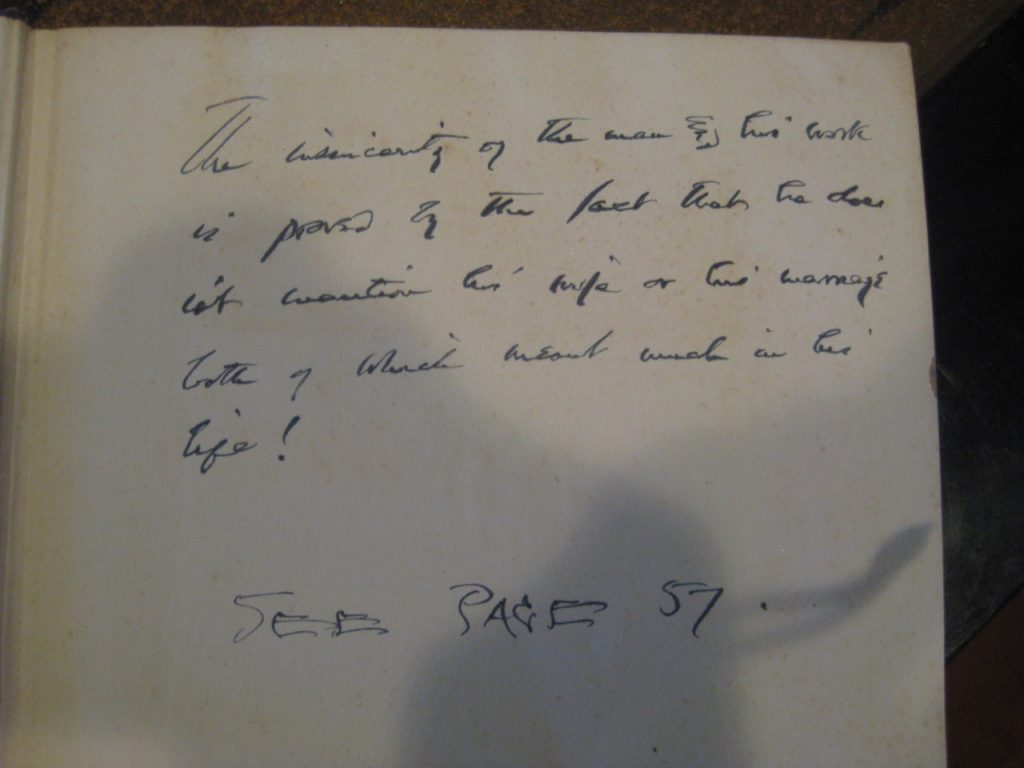 The insincerity of the man & his work
is proved by the fact that he does
not mention his wife or his marriage
both of which meant much in his
life!
SEE PAGE 57.